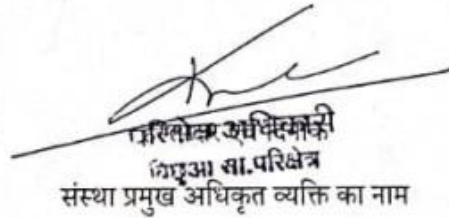 परिक्षेत्र अधिकारी
बिछुआ सा.परिक्षेत्र
संस्था प्रमुख अधिकृत व्यक्ति का नाम